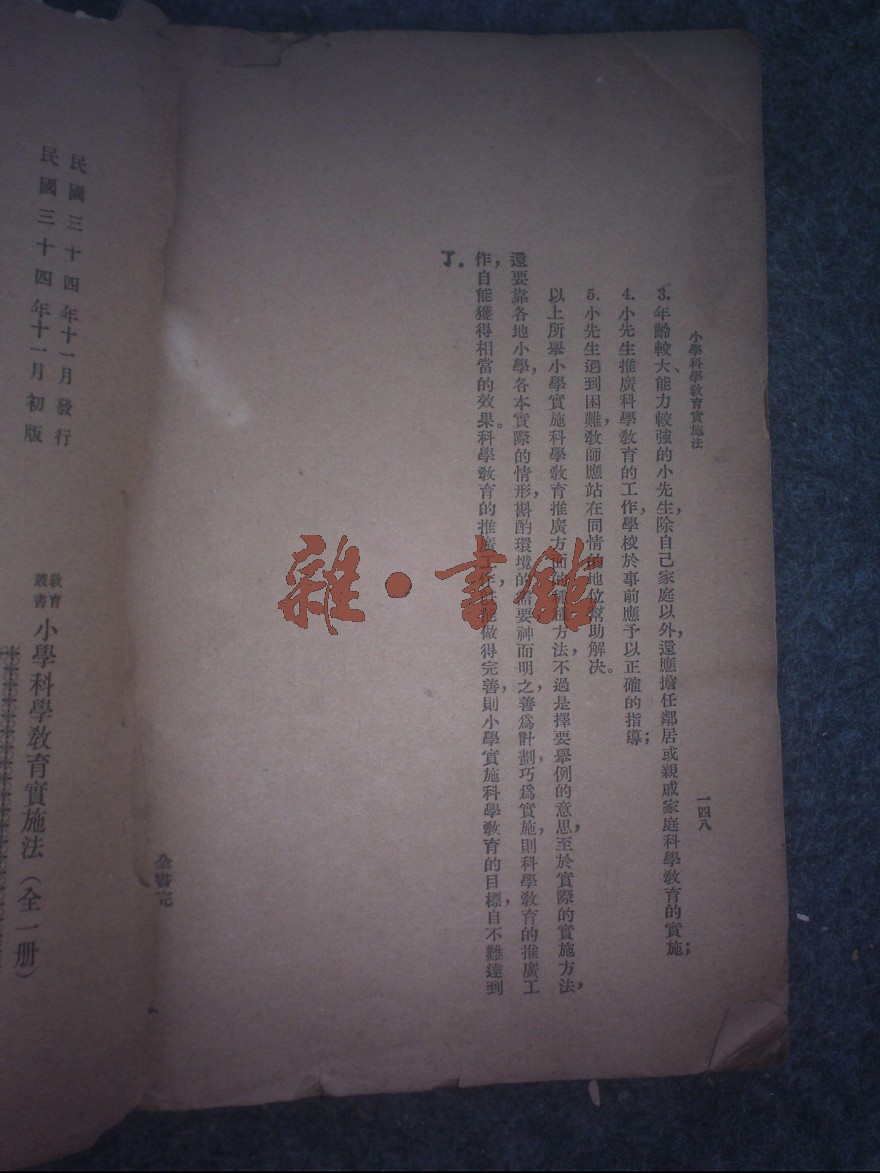 小學科學敎育實施法
一四八
3. 年齡較大、能力較強的小先生，除自己家庭以外，還應擔任鄰居或親戚家庭科學敎育的實施；
4. 小先生推廣科學敎育的工作，學校於事前應予以正確的指導；
5. 小先生遇到困難，敎師應站在同情的地位幫助解決。
以上所舉小學實施科學敎育推廣方面的種種方法，不過是擇要舉例的意思，至於實際的實施方法，
還要靠各地小學，各本實際的情形，斟酌環境的需要，神而明之，善爲計劃，巧爲實施，則科學敎育的推廣工
作，自能獲得相當的效果。科學敎育的推廣工作，能做得完善，則小學實施科學敎育的目標，自不難達到
了。
全書完
民國三十四年十一月發行
民國三十四年十一月初版
敎育叢書 小學科學敎育實施法（全一册）
雜·書館